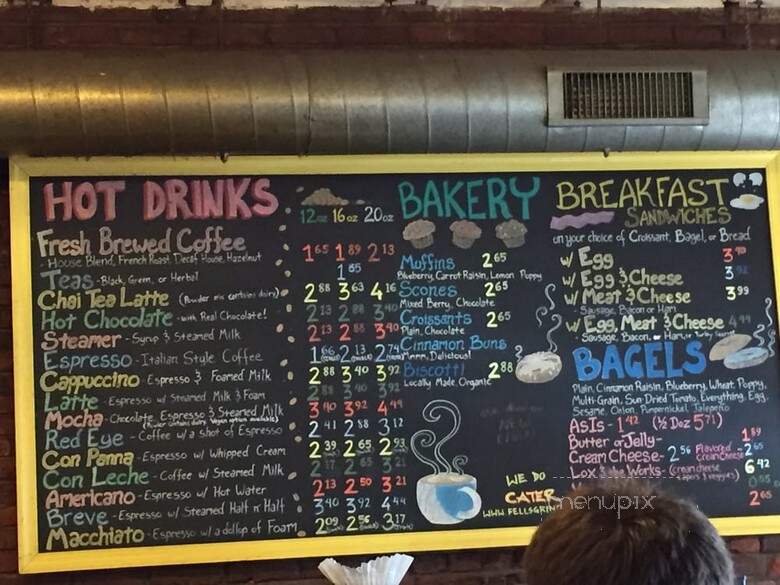 HOT DRINKS
12oz 16oz 20oz
Fresh Brewed Coffee 1.65 1.89 2.13
- House Blend, French Roast, Decaf House, Hazelnut
Teas - Black, Green, or Herbal 1.65
Chai Tea Latte (Powder mix contains dairy) 2.88 3.63 4.16
Hot Chocolate - with Real Chocolate! 2.13 2.88 3.40
Steamer - Syrup & Steamed Milk 2.13 2.88 3.40
Espresso - Italian Style Coffee 1.66 2.13 2.74
Cappuccino - Espresso & Foamed Milk 2.88 3.40 3.92
Latte - Espresso w/ Steamed Milk & Foam 2.88 3.40 3.92
Mocha - Chocolate, Espresso & Steamed Milk 3.40 3.92 4.44
Red Eye - Coffee w/ a shot of Espresso 2.41 2.88 3.12
Con Panna - Espresso w/ Whipped Cream 2.39 2.65 2.93
Con Leche - Coffee w/ Steamed Milk 2.17 2.65 3.21
Americano - Espresso w/ Hot Water 2.13 2.50 3.21
Breve - Espresso w/ Steamed Half n' Half 3.40 3.92 4.44
Macchiato - Espresso w/ a dollop of Foam 2.09 2.56 3.17
BAKERY
Muffins 2.65
Blueberry, Carrot Raisin, Lemon Poppy
Scones 2.65
Mixed Berry, Chocolate
Croissants 2.65
Plain, Chocolate
Cinnamon Buns
Mmm, Delicious!
Biscotti 2.88
Locally Made Organic
WE DO
CATER
BREAKFAST
SANDWICHES
on your choice of Croissant, Bagel, or Bread
w/ Egg
w/ Egg & Cheese
w/ Meat & Cheese 3.99
- Sausage, Bacon or Ham
w/ Egg, Meat & Cheese 4.99
- Sausage, Bacon, or Ham, or
BAGELS
Plain, Cinnamon Raisin, Blueberry, Wheat, Poppy,
Multi-Grain, Sun-Dried Tomato, Everything, Egg,
Sesame, Onion, Pumpernickel, Jalapeño
As Is - 1.42 (½ Doz 5.71)
Butter or Jelly - 1.89
Cream Cheese - 2.56 Flavored Cream Cheese - 2.65
Lox & the Works - (cream cheese, 6.42
capers & veggies)
2.65
menupix